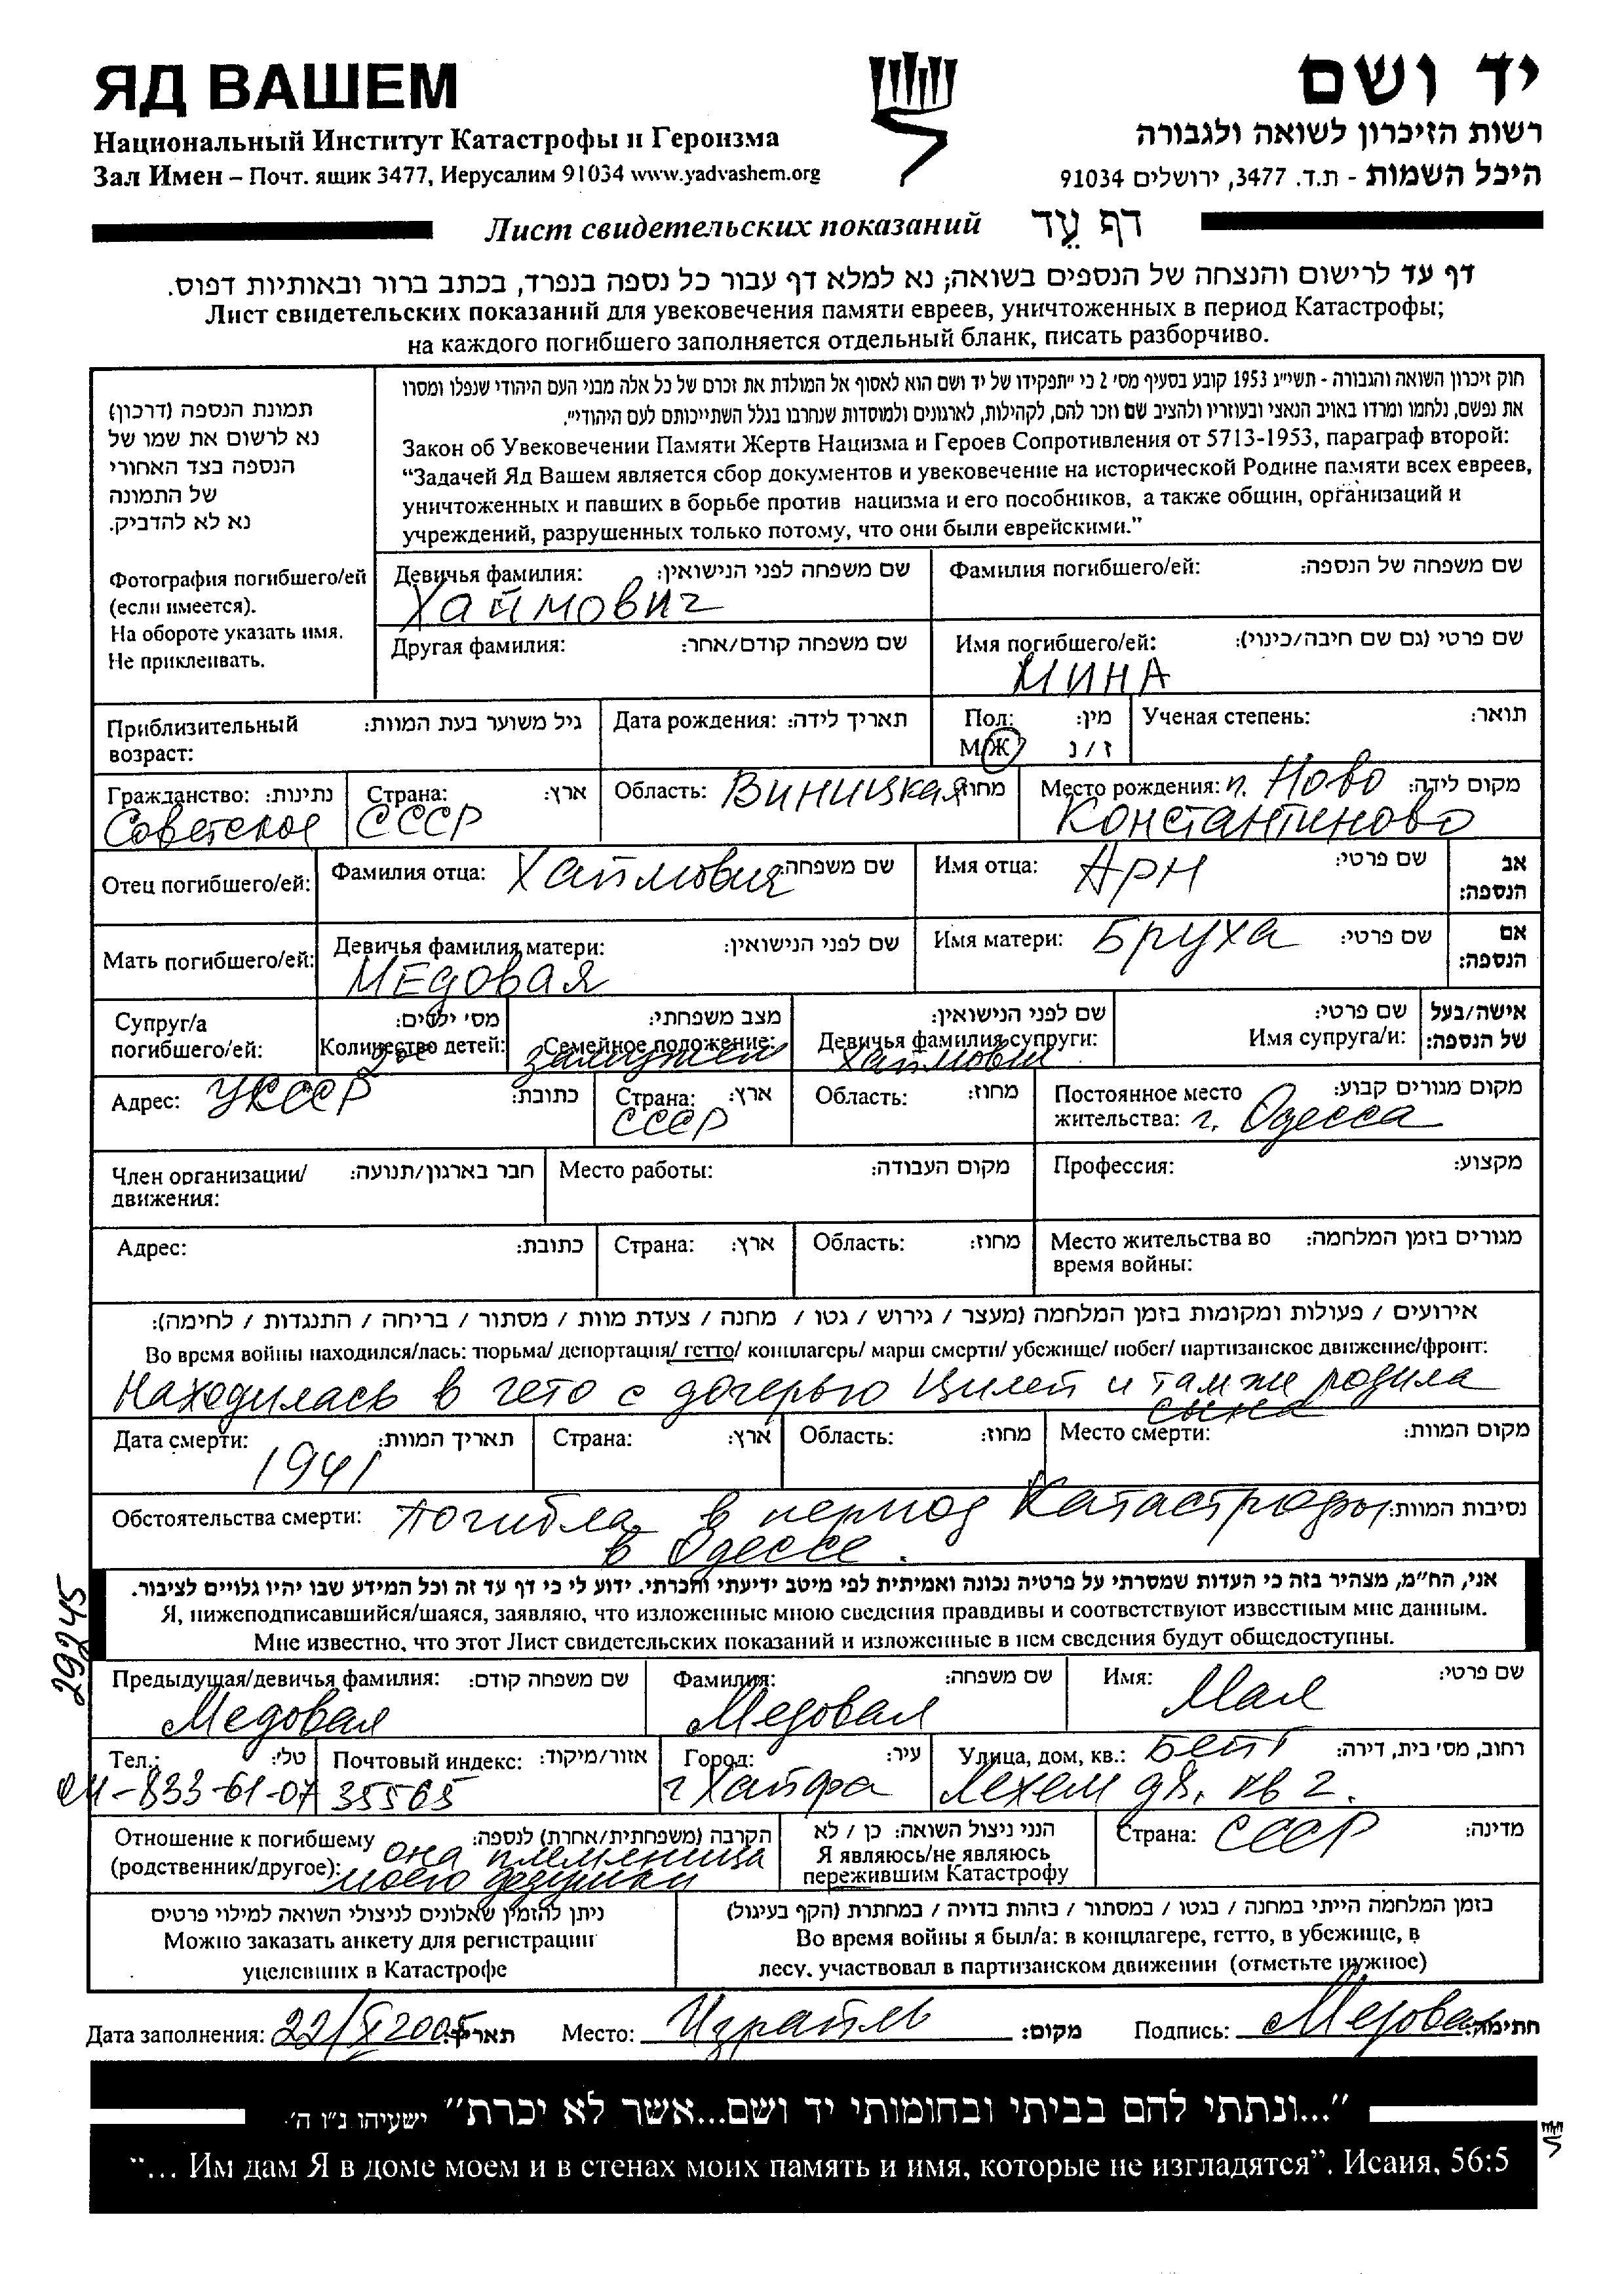 ЯД ВАШЕМ
יד ושם
Национальный Институт Катастрофы и Героизма
רשות הזיכרון לשואה ולגבורה
Зал Имен – Почт. ящик 3477, Иерусалим 91034 www.yadvashem.org
היכל השמות - ת.ד. 3477, ירושלים 91034
Лист свидетельских показаний דף עֵד
דף עד לרישום והנצחה של הנספים בשואה; נא למלא דף עבור כל נספה בנפרד, בכתב ברור ובאותיות דפוס.
Лист свидетельских показаний для увековечения памяти евреев, уничтоженных в период Катастрофы;
на каждого погибшего заполняется отдельный бланк, писать разборчиво.
תמונת הנספה (דרכון)
נא לרשום את שמו של
הנספה בצד האחורי
של התמונה
נא לא להדביק.
Фотография погибшего/ей
(если имеется).
На обороте указать имя.
Не приклеивать.
חוק זיכרון השואה והגבורה - תשי"ג 1953 קובע בסעיף מס' 2 כי "תפקידו של יד ושם הוא לאסוף אל המולדת את זכרם של כל אלה מבני העם היהודי שנפלו ומסרו
את נפשם, נלחמו ומרדו באויב הנאצי ובעוזריו ולהציב שם וזכר להם, לקהילות, לארגונים ולמוסדות שנחרבו בגלל השתייכותם לעם היהודי".
Закон об Увековечении Памяти Жертв Нацизма и Героев Сопротивления от 5713-1953, параграф второй:
“Задачей Яд Вашем является сбор документов и увековечение на исторической Родине памяти всех евреев,
уничтоженных и павших в борьбе против нацизма и его пособников, а также общин, организаций и
учреждений, разрушенных только потому, что они были еврейскими.”
Девичья фамилия: שם משפחה לפני הנישואין:
Хаймович
Фамилия погибшего/ей: שם משפחה של הנספה:
Другая фамилия: שם משפחה קודם/אחר:
Имя погибшего/ей: שם פרטי (גם שם חיבה/כינוי):
МИНА
Приблизительный возраст: גיל משוער בעת המוות:
Дата рождения: תאריך לידה:
Пол: מין:
М/Ж ז / נ
Ученая степень: תואר:
Гражданство: נתינות:
Советское
Страна: ארץ:
СССР
Область: Виницкая מחוז:
Место рождения: п. Ново מקום לידה:
Константиново
Отец погибшего/ей: Фамилия отца: Хаймович שם משפחה:
Имя отца: Арн שם פרטי: אב הנספה:
Мать погибшего/ей: Девичья фамилия матери: שם לפני הנישואין:
Медовая
Имя матери: Бруха שם פרטי: אם הנספה:
Супруг/а погибшего/ей:
מס' ילדים:
Количество детей: двое
מצב משפחתי:
Семейное положение: замужем
שם לפני הנישואין:
Девичья фамилия супруги: Хаймович
שם פרטי:
Имя супруга/и:
אישה/בעל של הנספה:
Адрес: УКССР כתובת:
Страна: ארץ:
СССР
Область: מחוז:
Постоянное место жительства: г. Одесса מקום מגורים קבוע:
Член организации/ движения: חבר בארגון/תנועה:
Место работы: מקום העבודה:
Профессия: מקצוע:
Адрес: כתובת:
Страна: ארץ:
Область: מחוז:
Место жительства во время войны: מגורים בזמן המלחמה:
אירועים / פעולות ומקומות בזמן המלחמה (מעצר / גירוש / גטו / מחנה / צעדת מוות / מסתור / בריחה / התנגדות / לחימה):
Во время войны находился/лась: тюрьма/ депортация/ гетто/ концлагерь/ марш смерти/ убежище/ побег/ партизанское движение/фронт:
Находилась в гето с дочерью Цилей и там же родила
сына
Дата смерти: תאריך המוות:
1941
Страна: ארץ:
Область: מחוז:
Место смерти: מקום המוות:
Обстоятельства смерти: Погибла в период Катастрофы נסיבות המוות:
в Одессе.
אני, הח"מ, מצהיר בזה כי העדות שמסרתי על פרטיה נכונה ואמיתית לפי מיטב ידיעתי והכרתי. ידוע לי כי דף עד זה וכל המידע שבו יהיו גלויים לציבור.
Я, нижеподписавшийся/шаяся, заявляю, что изложенные мною сведения правдивы и соответствуют известным мне данным.
Мне известно, что этот Лист свидетельских показаний и изложенные в нем сведения будут общедоступны.
29245
Предыдущая/девичья фамилия: שם משפחה קודם:
Медовая
Фамилия: שם משפחה:
Медовая
Имя: Мая שם פרטי:
Тел.: טל':
04-833-61-07
Почтовый индекс: אזור/מיקוד:
35565
Город: עיר:
г Хайфа
Улица, дом, кв.: Бейт רחוב, מס' בית, דירה:
Лехем д 8, кв 2.
Отношение к погибшему הקרבה (משפחתית/אחרת) לנספה:
(родственник/другое): она племяница
моего дедушки
הנני ניצול השואה: כן / לא
Я являюсь/не являюсь
пережившим Катастрофу
Страна: СССР מדינה:
ניתן להזמין שאלונים לניצולי השואה למילוי פרטים
Можно заказать анкету для регистрации
уцелевших в Катастрофе
בזמן המלחמה הייתי במחנה / בגטו / במסתור / בזהות בדויה / במחתרת (הקף בעיגול)
Во время войны я был/а: в концлагере, гетто, в убежище, в
лесу, участвовал в партизанском движении (отметьте нужное)
Дата заполнения: 22/X 2005 תאריך: Место: Израиль מקום: Подпись: Медовая חתימה:
"...ונתתי להם בביתי ובחומותי יד ושם...אשר לא יכרת" ישעיהו נ"ו ה'
“... Им дам Я в доме моем и в стенах моих память и имя, которые не изгладятся”. Исаия, 56:5